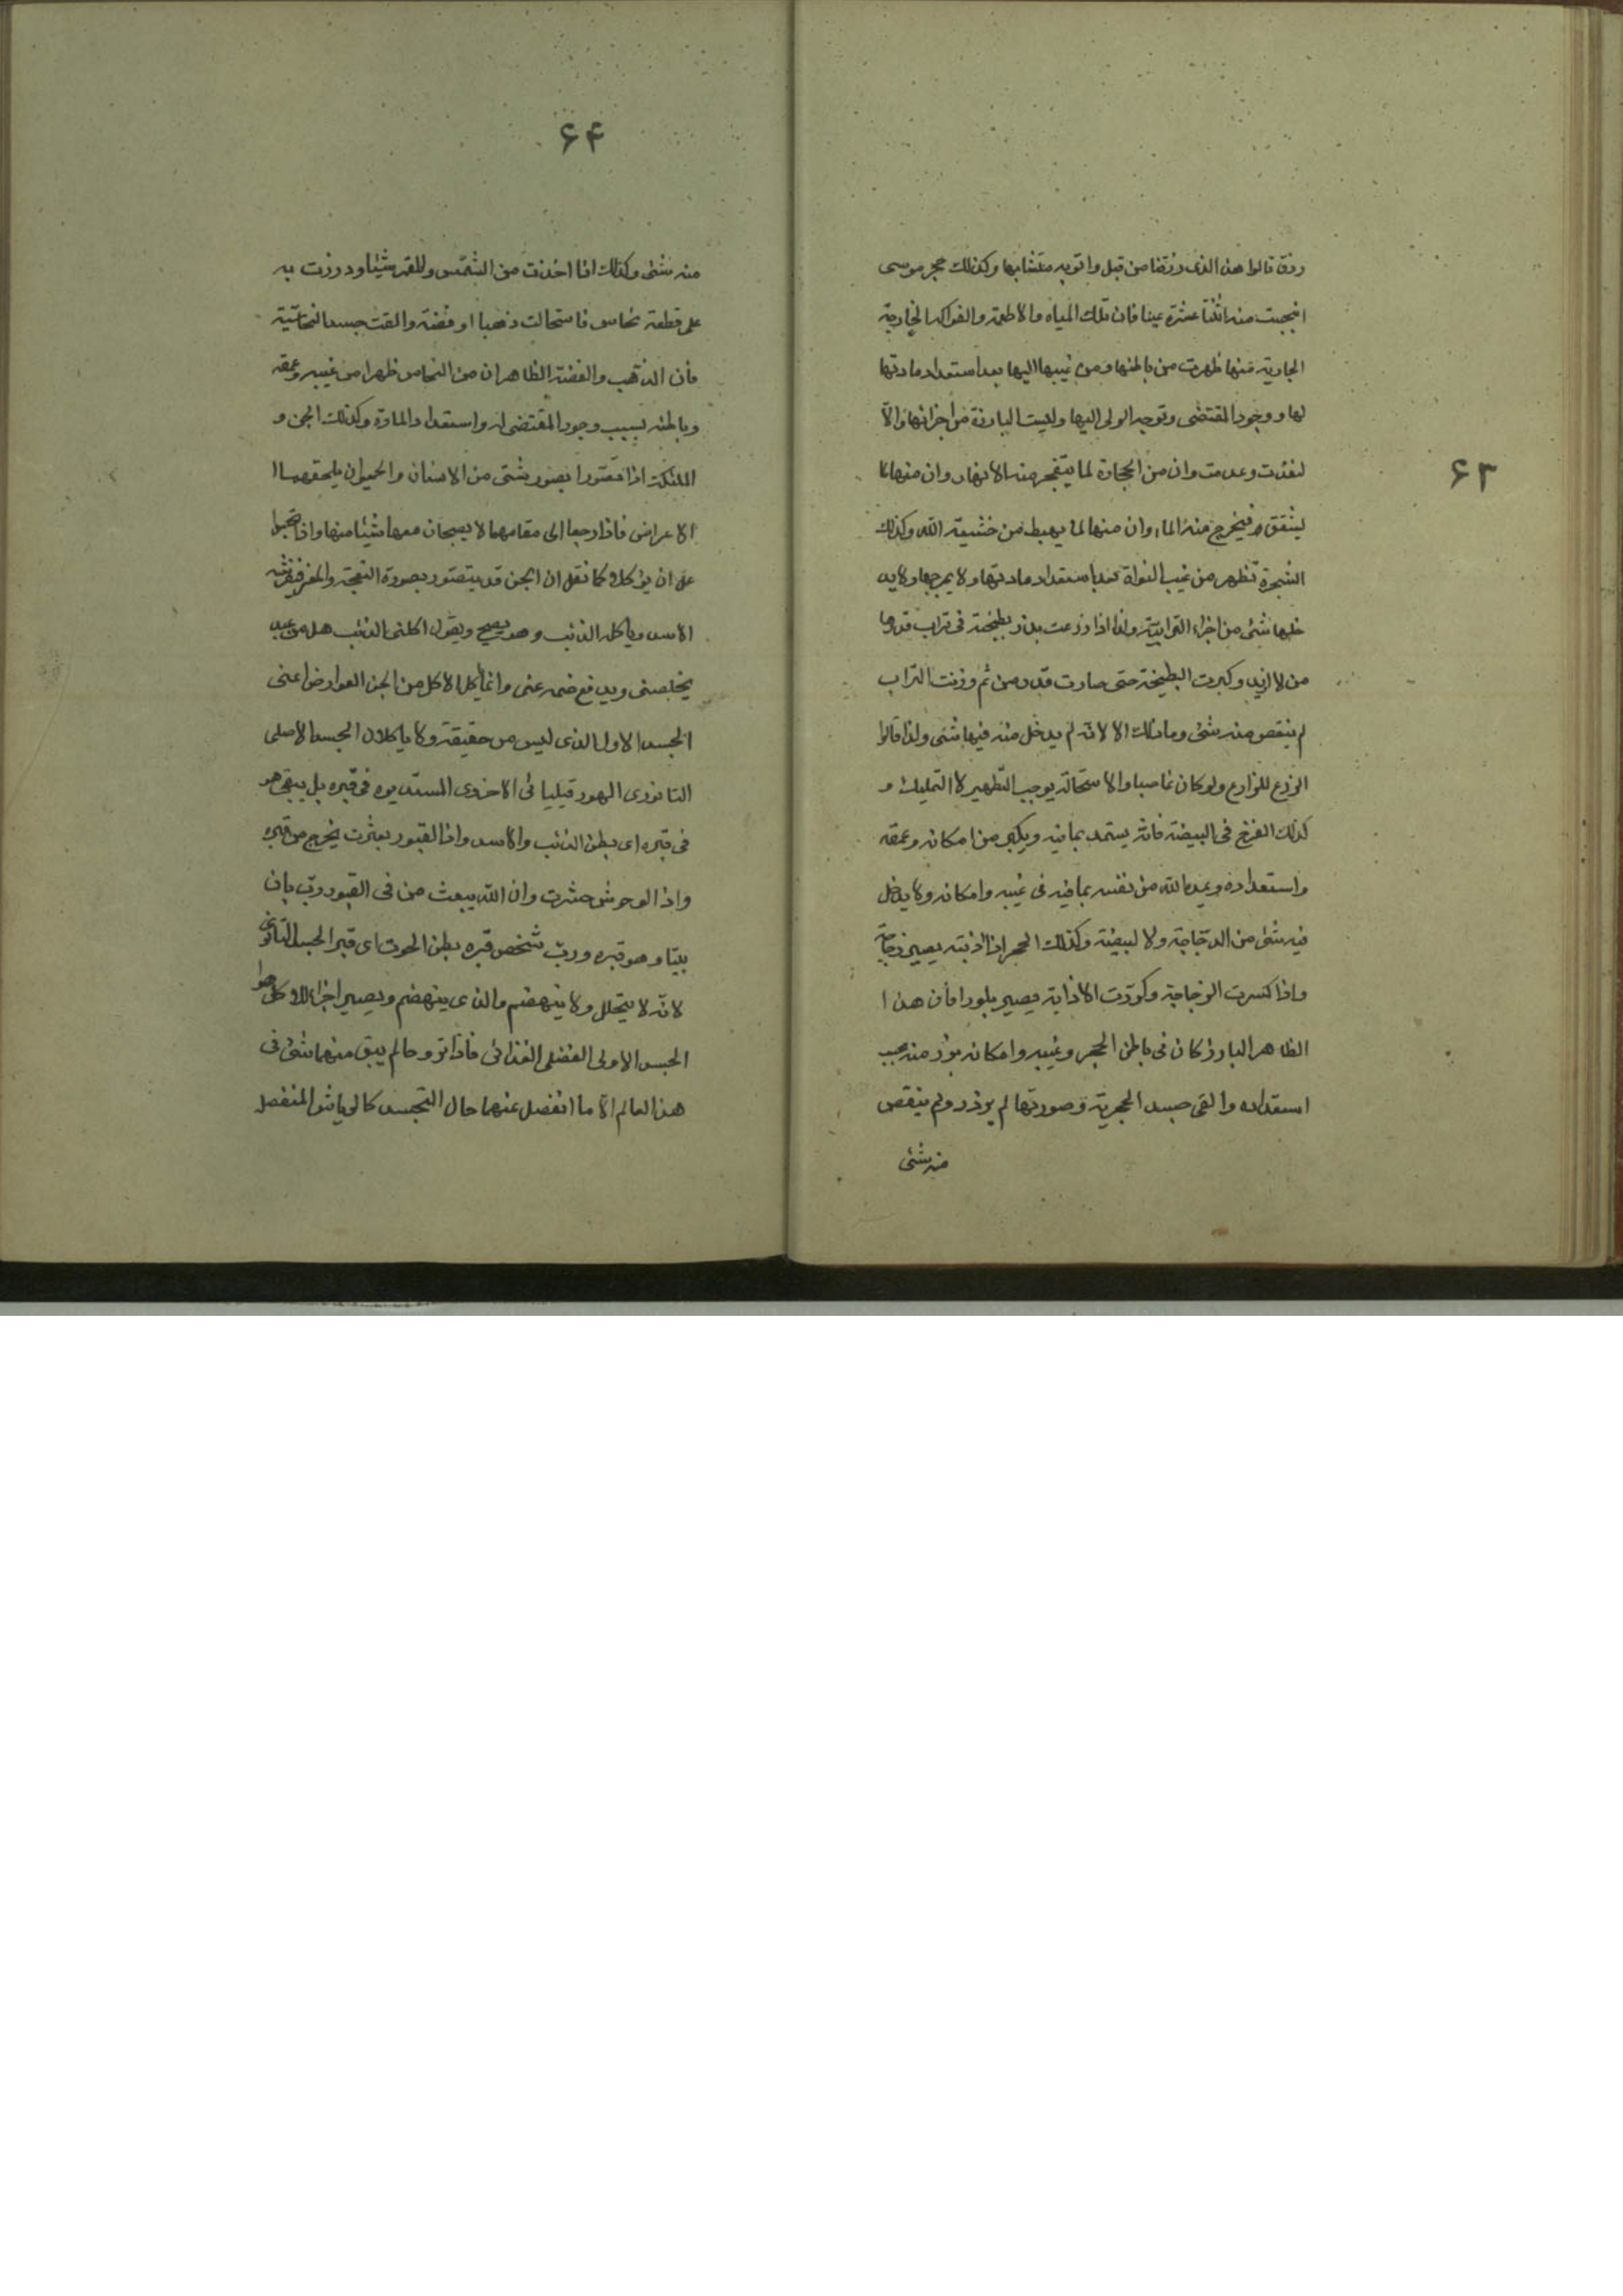 ۶۳
رزق قالوا هذا الذی رزقنا من قبل واتوبه متشابها وکذلك حجر موسی
انبجست منه اثنتا عشرة عینا فان تلك المیاه والاطعمة والفواکه الخارجة
الجاریة منها ظهرت من باطنها ومن غیبها الیها بعد استعداد مادتها
لها و وجود المقتضی وتوجه الولی الیها ولیست البارزة من اجزائها والّا
لنفدت وعدمت وان من الحجارة لما یتفجر منه الانهار وان منها لما
یشقق فیخرج منه الماء وان منها لما یهبط من خشیة الله وکذلك
الشجرة تظهر من غیب النواة بعد استعداد مادتها ولا یمزجها ولا ید
خلها شئ من اجزاء الترابیة ولذا اذا زرعت بذر بطیخة فی تراب قدرها
من لا ازید وکبرت البطیخة حتی صارت قدر من ثم وزنت التراب
لم ینقص منه شئ وما ذلك الا لانه لم یدخل منه فیها شئ ولذا قالوا
الزرع للزارع ولو کان غاصبا والاستحالة یوجب التطهیر لا التملیك و
کذلك الفرخ فی البیضة فانه یستمد بما فیه ویکبر من امکانه وعمقه
واستعداده ویمده الله من نفسه بما فیه فی غیبه وامکانه ولا یدخل
فیه شئ من الدجاجة ولا البیضة وکذلك الحجر اذا اذبته یصیر زجاجة
واذا کسرت الزجاجة وکررت الاذابة یصیر بلورا فان هذا
الظاهر البارز کان فی باطن الحجر وغیبه وامکانه برز منه بحسب
استعداده والقی جسد الحجریة وصورتها لم یزدد ولم ینقص
منه شئ
۶۴
منه شئ وکذلك اذا اخذت من الشمس والقمر شیئا ودرزت به
علی قطعة نحاس فاستحالت ذهبا او فضة والقت جسد النحاسیة
فان الذهب والفضة الظاهران من النحاس ظهرا من غیبه وعمقه
وباطنه بسبب وجود المقتضی له واستعداد المادة وکذلك الجن و
الملئکة اذا تصورا بصور شتی من الانسان والحیوان یلحقهما
الاعراض فاذا رجعا الی مقامهما لا یصحبان معها شیئا منها واذا
علی ان یؤکلا کما نقل ان الجن قد یتصور بصورة النعجة والمعز فیفرشه
الاسد ویاکله الذئب وهو یصیح ویقول اکلنی الذئب هل من عبد
یخلصنی ویدفع ضره عنی وانما یاکل الاکل من الجن العوارض اعنی
الجسد الاول الذی لیس من حقیقته ولا یاکلان الجسد الاصلی
الثانوی الهورقلیائی الاخروی المستدیره فی قبره بل یبقی هو
فی قبره ای بطن الذئب والاسد واذا القبور بعثرت یخرج من قبره
واذا الوحوش حشرت وان الله یبعث من فی القبور ورب بان
بیتا وهو قبره ورب شخص قبره بطن الحوت ای قبر الجسد الثانوی
لانه لا یتحلل ولا ینهضم والذی ینهضم ویصیر اجزاء للاکل هو
الجسد الاولی الفضلی الغذائی فاذا تروحا لم یبق منهما شئ فی
هذا العالم الا ما انفصل عنهما حال التجسد کالریاش المنفصل